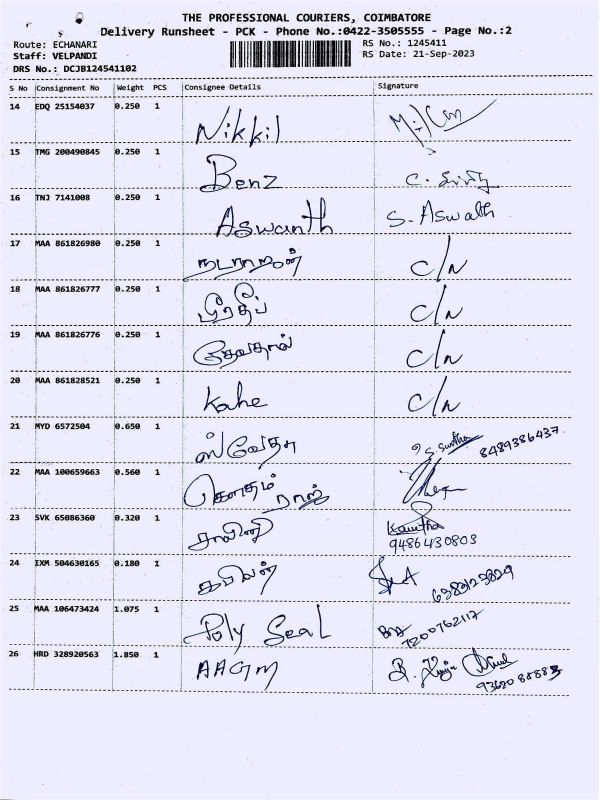 THE PROFESSIONAL COURIERS, COIMBATORE
Delivery Runsheet - PCK - Phone No.:0422-3505555 - Page No.:2
Route: ECHANARI RS No.: 1245411
Staff: VELPANDI RS Date: 21-Sep-2023
DRS No.: DCJB124541102
S No Consignment No Weight PCS Consignee Details Signature
14 EDQ 25154037 0.250 1 Nikkil
15 TMG 200490845 0.250 1 Benz
16 TNJ 7141008 0.250 1 Aswanth S. Aswath
17 MAA 861826980 0.250 1 C/N
18 MAA 861826777 0.250 1 பிரதீப் C/N
19 MAA 861826776 0.250 1 C/N
20 MAA 861828521 0.250 1 Kahe C/N
21 MYD 6572504 0.650 1 ஸ்வேதா 8489386437
22 MAA 100659663 0.560 1 கௌதம் ராஜ்
23 SVK 65086360 0.320 1 Kavitha
9486430803
24 IXM 504630165 0.180 1 கபிலன்
25 MAA 106473424 1.075 1 Poly Seal 7200762117
26 HRD 328920563 1.850 1 AAGM